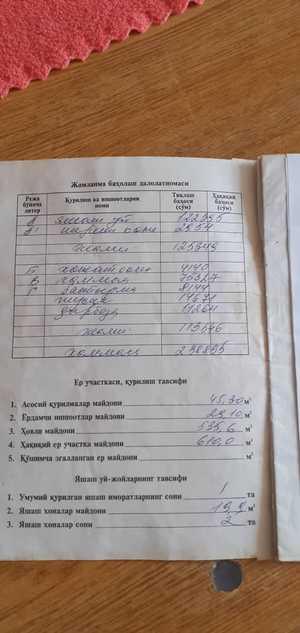 Жамланма баҳолаш далолатномаси
Режа бўйича литер
Қурилиш ва иншоотларни номи
Тиклаш баҳоси (сўм)
Ҳақиқий баҳоси (сўм)
А яшаш уй 122995
А1 кириш хона 2854
жами 125849
Б хожатхона 4140
Г 8144
дарвоза
жами 113646
жаммаси
Ер участкаси, қурилиш тавсифи
1. Асосий қурилмалар майдони 45.30 м²
2. Ёрдамчи иншоотлар майдони 29.10 м²
3. Ҳовли майдони 535,6 м²
4. Ҳақиқий ер участка майдони 610,0 м²
5. Қўшимча эгалланган ер майдони м²
Яшаш уй-жойларнинг тавсифи
1. Умумий қурилган яшаш иморатларнинг сони 1 та
2. Яшаш хоналар майдони м²
3. Яшаш хоналар сони 2 та